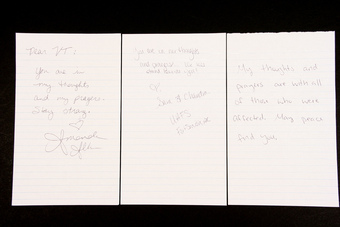 Dear VT,
You are in
my thoughts
and my prayers.
Stay strong.
Amanda
Allen
You are in our thoughts
and prayers.
Dave & Claudia
My thoughts and
prayers are with all
of those who were
affected. May peace
find you.